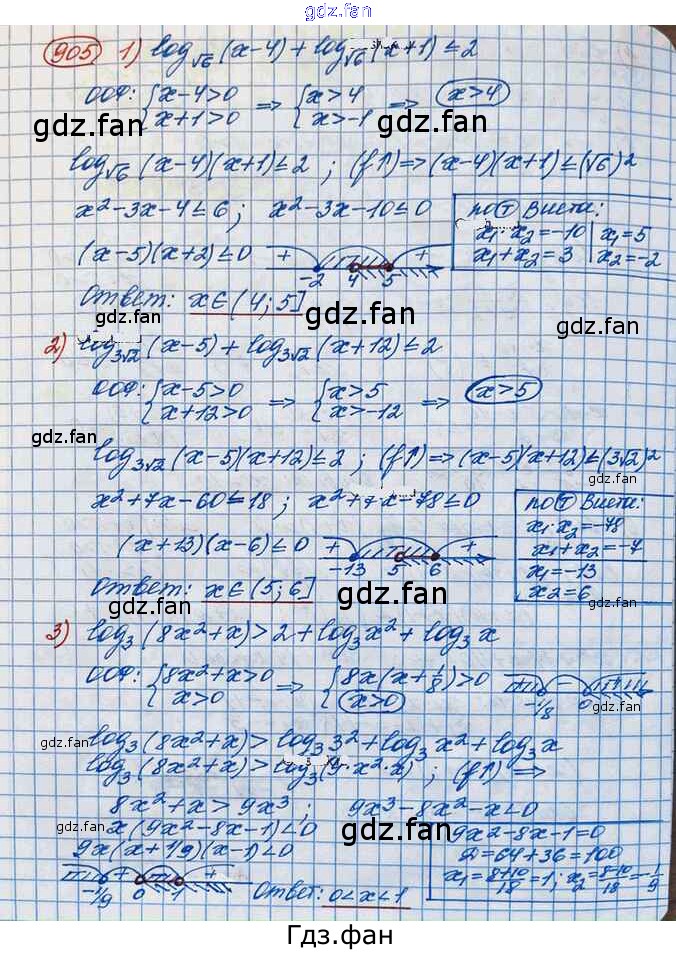 gdz.fan
905 1) log√6 (x-4) + log√6 (x+1) ≤ 2
ООФ: {x-4>0 {x+1>0 => {x>4 {x>-1 => x>4
gdz.fan gdz.fan
log√6 (x-4)(x+1) ≤ 2 ; (f↑) => (x-4)(x+1) ≤ (√6)²
x²-3x-4≤6; x²-3x-10≤0
по Т Виета:
x₁·x₂=-10 x₁=5
x₁+x₂=3 x₂=-2
(x-5)(x+2)≤0 + -2 4 5 +
Ответ: x∈(4;5]
gdz.fan gdz.fan gdz.fan
2) log3√2 (x-5) + log3√2 (x+12) ≤ 2
ООФ: {x-5>0 {x+12>0 => {x>5 {x>-12 => x>5
gdz.fan gdz.fan
log3√2 (x-5)(x+12) ≤ 2 ; (f↑) => (x-5)(x+12) ≤ (3√2)²
gdz.fan
x²+7x-60≤18 ; x²+7x-78≤0
по Т Виета:
x₁·x₂=-78
x₁+x₂=-7
x₁=-13
x₂=6
(x+13)(x-6)≤0 + -13 5 6 +
Ответ: x∈(5;6]
gdz.fan gdz.fan gdz.fan
3) log₃(8x²+x)>2+log₃x²+log₃x
ООФ: {8x²+x>0 {x>0 => {8x(x+1/8)>0 {x>0 - -1/8 0
gdz.fan gdz.fan gdz.fan
log₃(8x²+x)>log₃3²+log₃x²+log₃x
gdz.fan
log₃(8x²+x)>log₃(9·x²·x) ; (f↑) =>
8x²+x>9x³ ; 9x³-8x²-x<0
x(9x²-8x-1)<0
9x(x+1/9)(x-1)<0
9x²-8x-1=0
D=64+36=100
x₁=8+10/18=1; x₂=8-10/18=-1/9
gdz.fan gdz.fan gdz.fan
-1/9 + 0 1 +
Ответ: 0<x<1
Гдз.фан